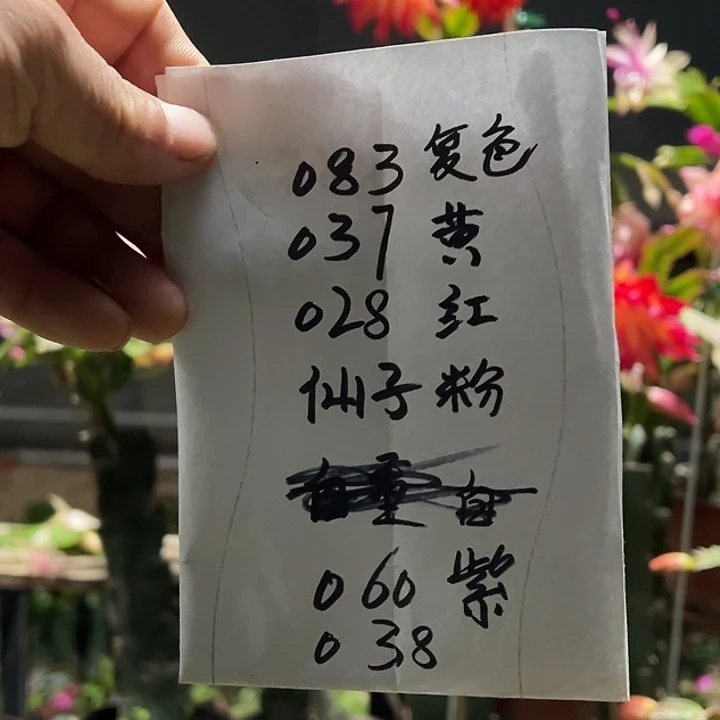 083 复色
037 黄
028 红
仙子 粉
060 紫
038